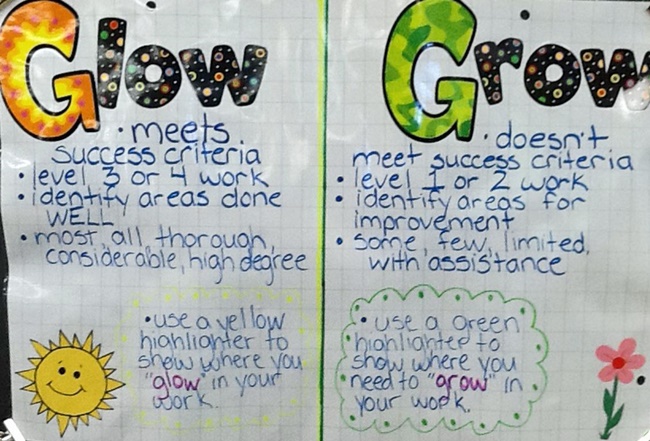 Glow
• meets
success criteria
• level 3 or 4 work
• identify areas done
WELL
• most, all, thorough,
considerable, high degree
• use a yellow
highlighter to
show where you
"glow" in your
work.
Grow
• doesn't
meet success criteria
• level 1 or 2 work
• identify areas for
improvement
• some, few, limited,
with assistance
• use a green
highlighter to
show where you
need to "grow" in
your work.